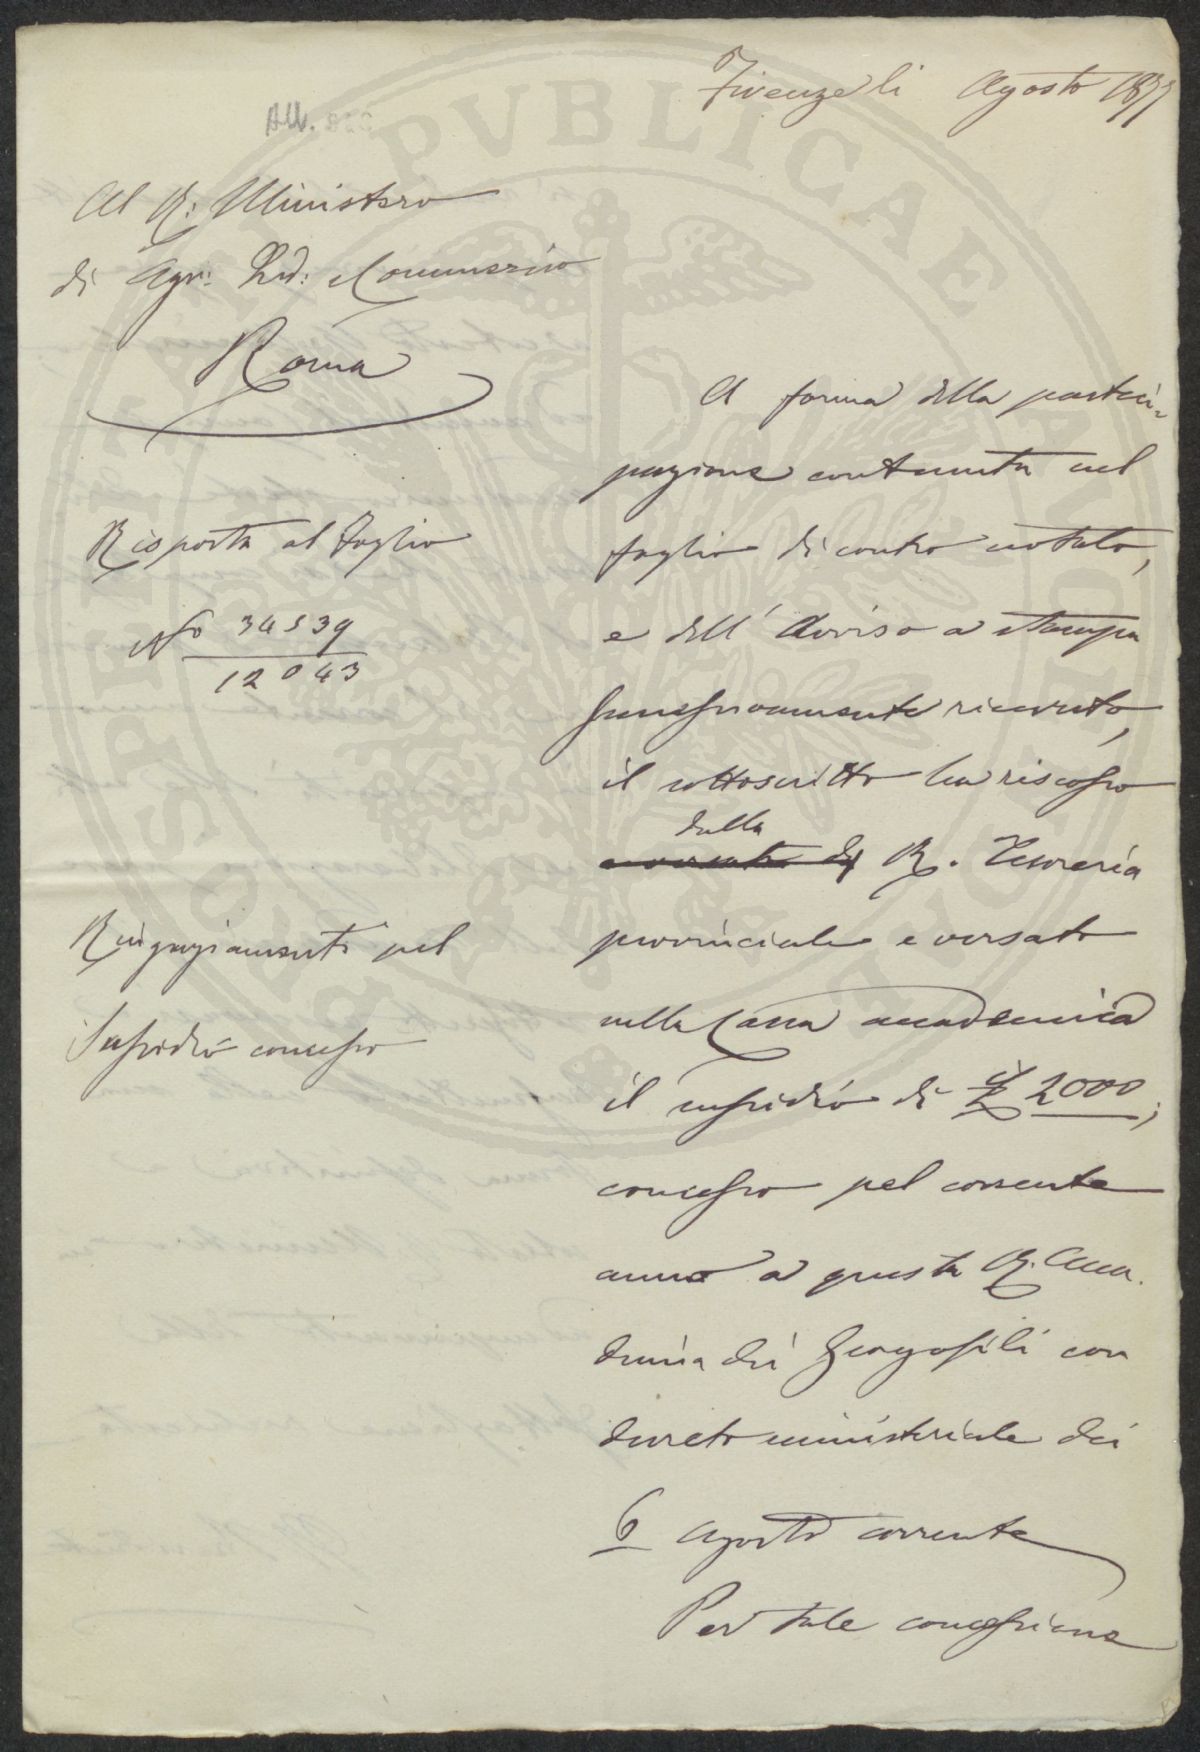 Firenze li Agosto 1877
All.
Al R: Ministero
di Agr: Ind: e Commercio
Roma
Risposta al Foglio
No 34539
12043
Ringraziamenti pel
Sussidio concesso
A forma della parteci-
pazione contenuta nel
foglio di contro notato,
e dell' Avviso a stampa
successivamente ricevuto,
il sottoscritto ha riscosso
dalla
R. Tesoreria
provinciale e versato
nella Cassa accademica
il sussidio di £ 2000,
concesso pel corrente
anno a questa R. Acca-
demia dei Georgofili con
decreto ministeriale dei
6 Agosto corrente
Per tale concessione
PROSPERITATI PVBLICAE AVGENDAE